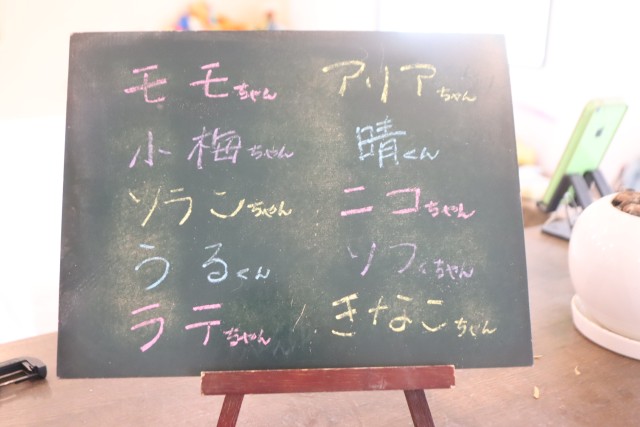 モモちゃん アリアちゃん
小梅ちゃん 晴くん
ソランちゃん ニコちゃん
うるくん ソフィちゃん
ラテちゃん きなこちゃん